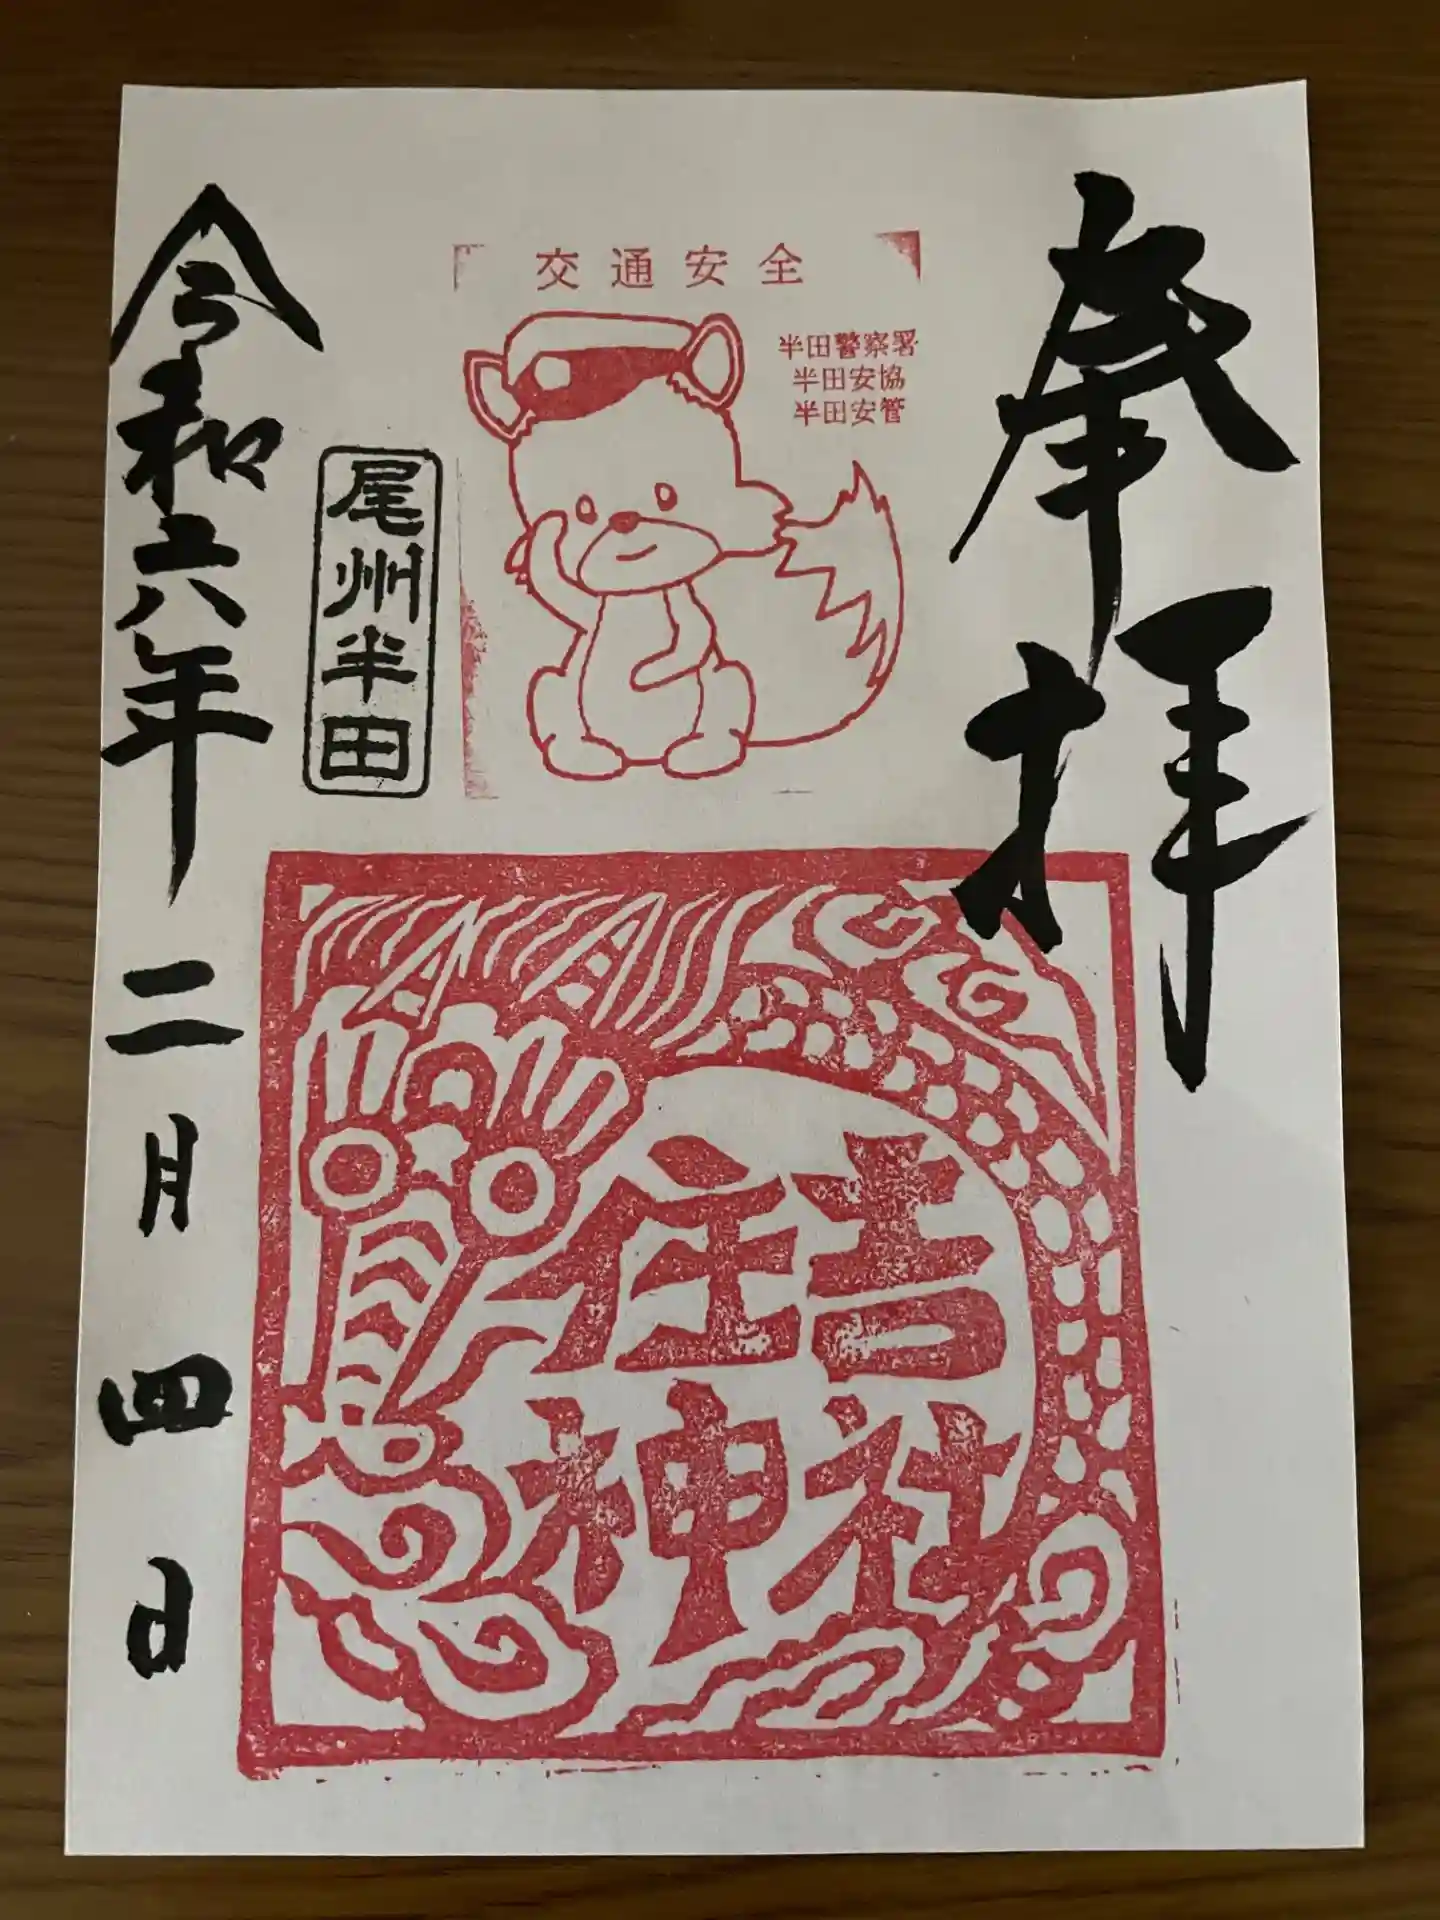 奉拝
交通安全
半田警察署
半田安協
半田安管
尾州半田
住吉
神社
令和六年二月四日